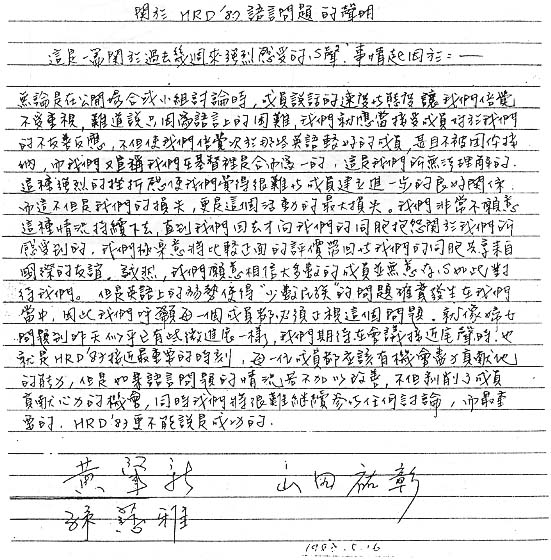 關於 HRD '83 語言問題的聲明
這是一篇關於過去幾週來強烈感受的心聲,事情起因於:—
無論是在公開場合或小組討論時,成員說話的速度與態度讓我們倍覺
不受重視,難道說只因為語言上的困難,我們就應當接受成員對於我們
的不友善反應,不但使我們倍覺次於那些英語較好的成員,甚且不被團體接
納,而我們又宣稱我們在基督裡是合而為一的.這是我們所無法理解的.
這種強烈的挫折感使我們覺得很難與成員建立進一步的良好關係.
而這不但是我們的損失,更是這個活動的最大損失.我們非常不願意
這種情況持續下去,直到我們回去才向我們的同胞抱怨關於我們所
感受到的.我們極樂意將比較正面的評價帶回與我們的同胞共享來自
國際的友誼.誠然,我們願意相信大多數的成員並無意存心如此對
待我們.但是英語上的弱勢使得"少數民族"的問題確實發生在我們
當中,因此我們呼籲每一個成員都必須正視這個問題.就像婦女
問題到昨天似乎已有些微進展一樣,我們期待在會議接近尾聲時,也
就是HRD'83接近最重要的時刻,每一位成員都應該有機會盡力貢獻他
的能力,但是如果語言問題的情況若不加以改善,不但剝削了成員
貢獻心力的機會,同時我們將很難繼續參與任何討論,而最重
要的.HRD'83更不能說是成功的.
黃肇新 山田祐彰
孫慧雅
1983.5.16